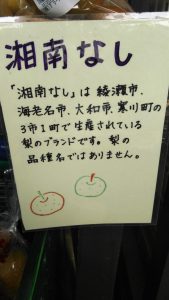 湘南なし
「湘南なし」は 綾瀬市、
海老名市、大和市、寒川町の
3市1町で生産されている
梨のブランドです。梨の
品種名ではありません。